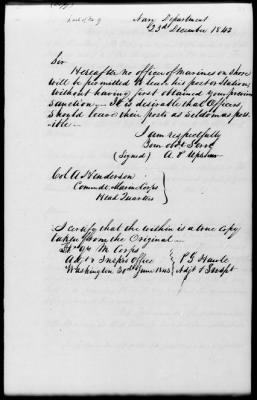 Navy Department
23rd December 1842
Sir
Hereafter no officer of Marines on Shore
will be permitted to leave his post or Station
without having first obtained your previous
sanction. It is desirable that Officers
should leave their posts as seldom as pos-
sible.
I am respectfully
Your obt Servt
(Signed) A. P. Upshur
Col A Henderson
Commdt Marine Corps
Head Quarters
I certify that the within is a true copy
taken from the Original
Hd Qrs M Corps
Adjt & Inspr's Office
Washington 30th June 1843
P G Howle
Adjt & Inspt